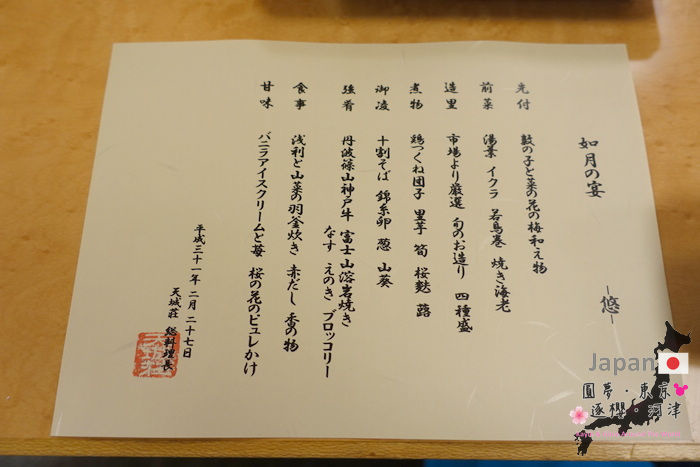 如月の宴　　―悠―
先付　数の子と菜の花の梅和え物
前菜　湯葉 イクラ 若鳥巻 焼き海老
造里　市場より厳選 旬のお造り 四種盛
煮物　鶏つくね団子 里芋 筍 桜麩 蕗
御凌　十割そば 錦糸卵 葱 山葵
強肴　丹波篠山神戸牛 富士山溶岩焼き
なす えのき ブロッコリー
食事　浅利と山菜の羽釜炊き 赤だし 香の物
甘味　バニラアイスクリームと苺 桜の花のピュレかけ
平成三十一年 二月 二十七日
天城荘 総料理長
Japan
圓夢・東京
逐櫻・河津